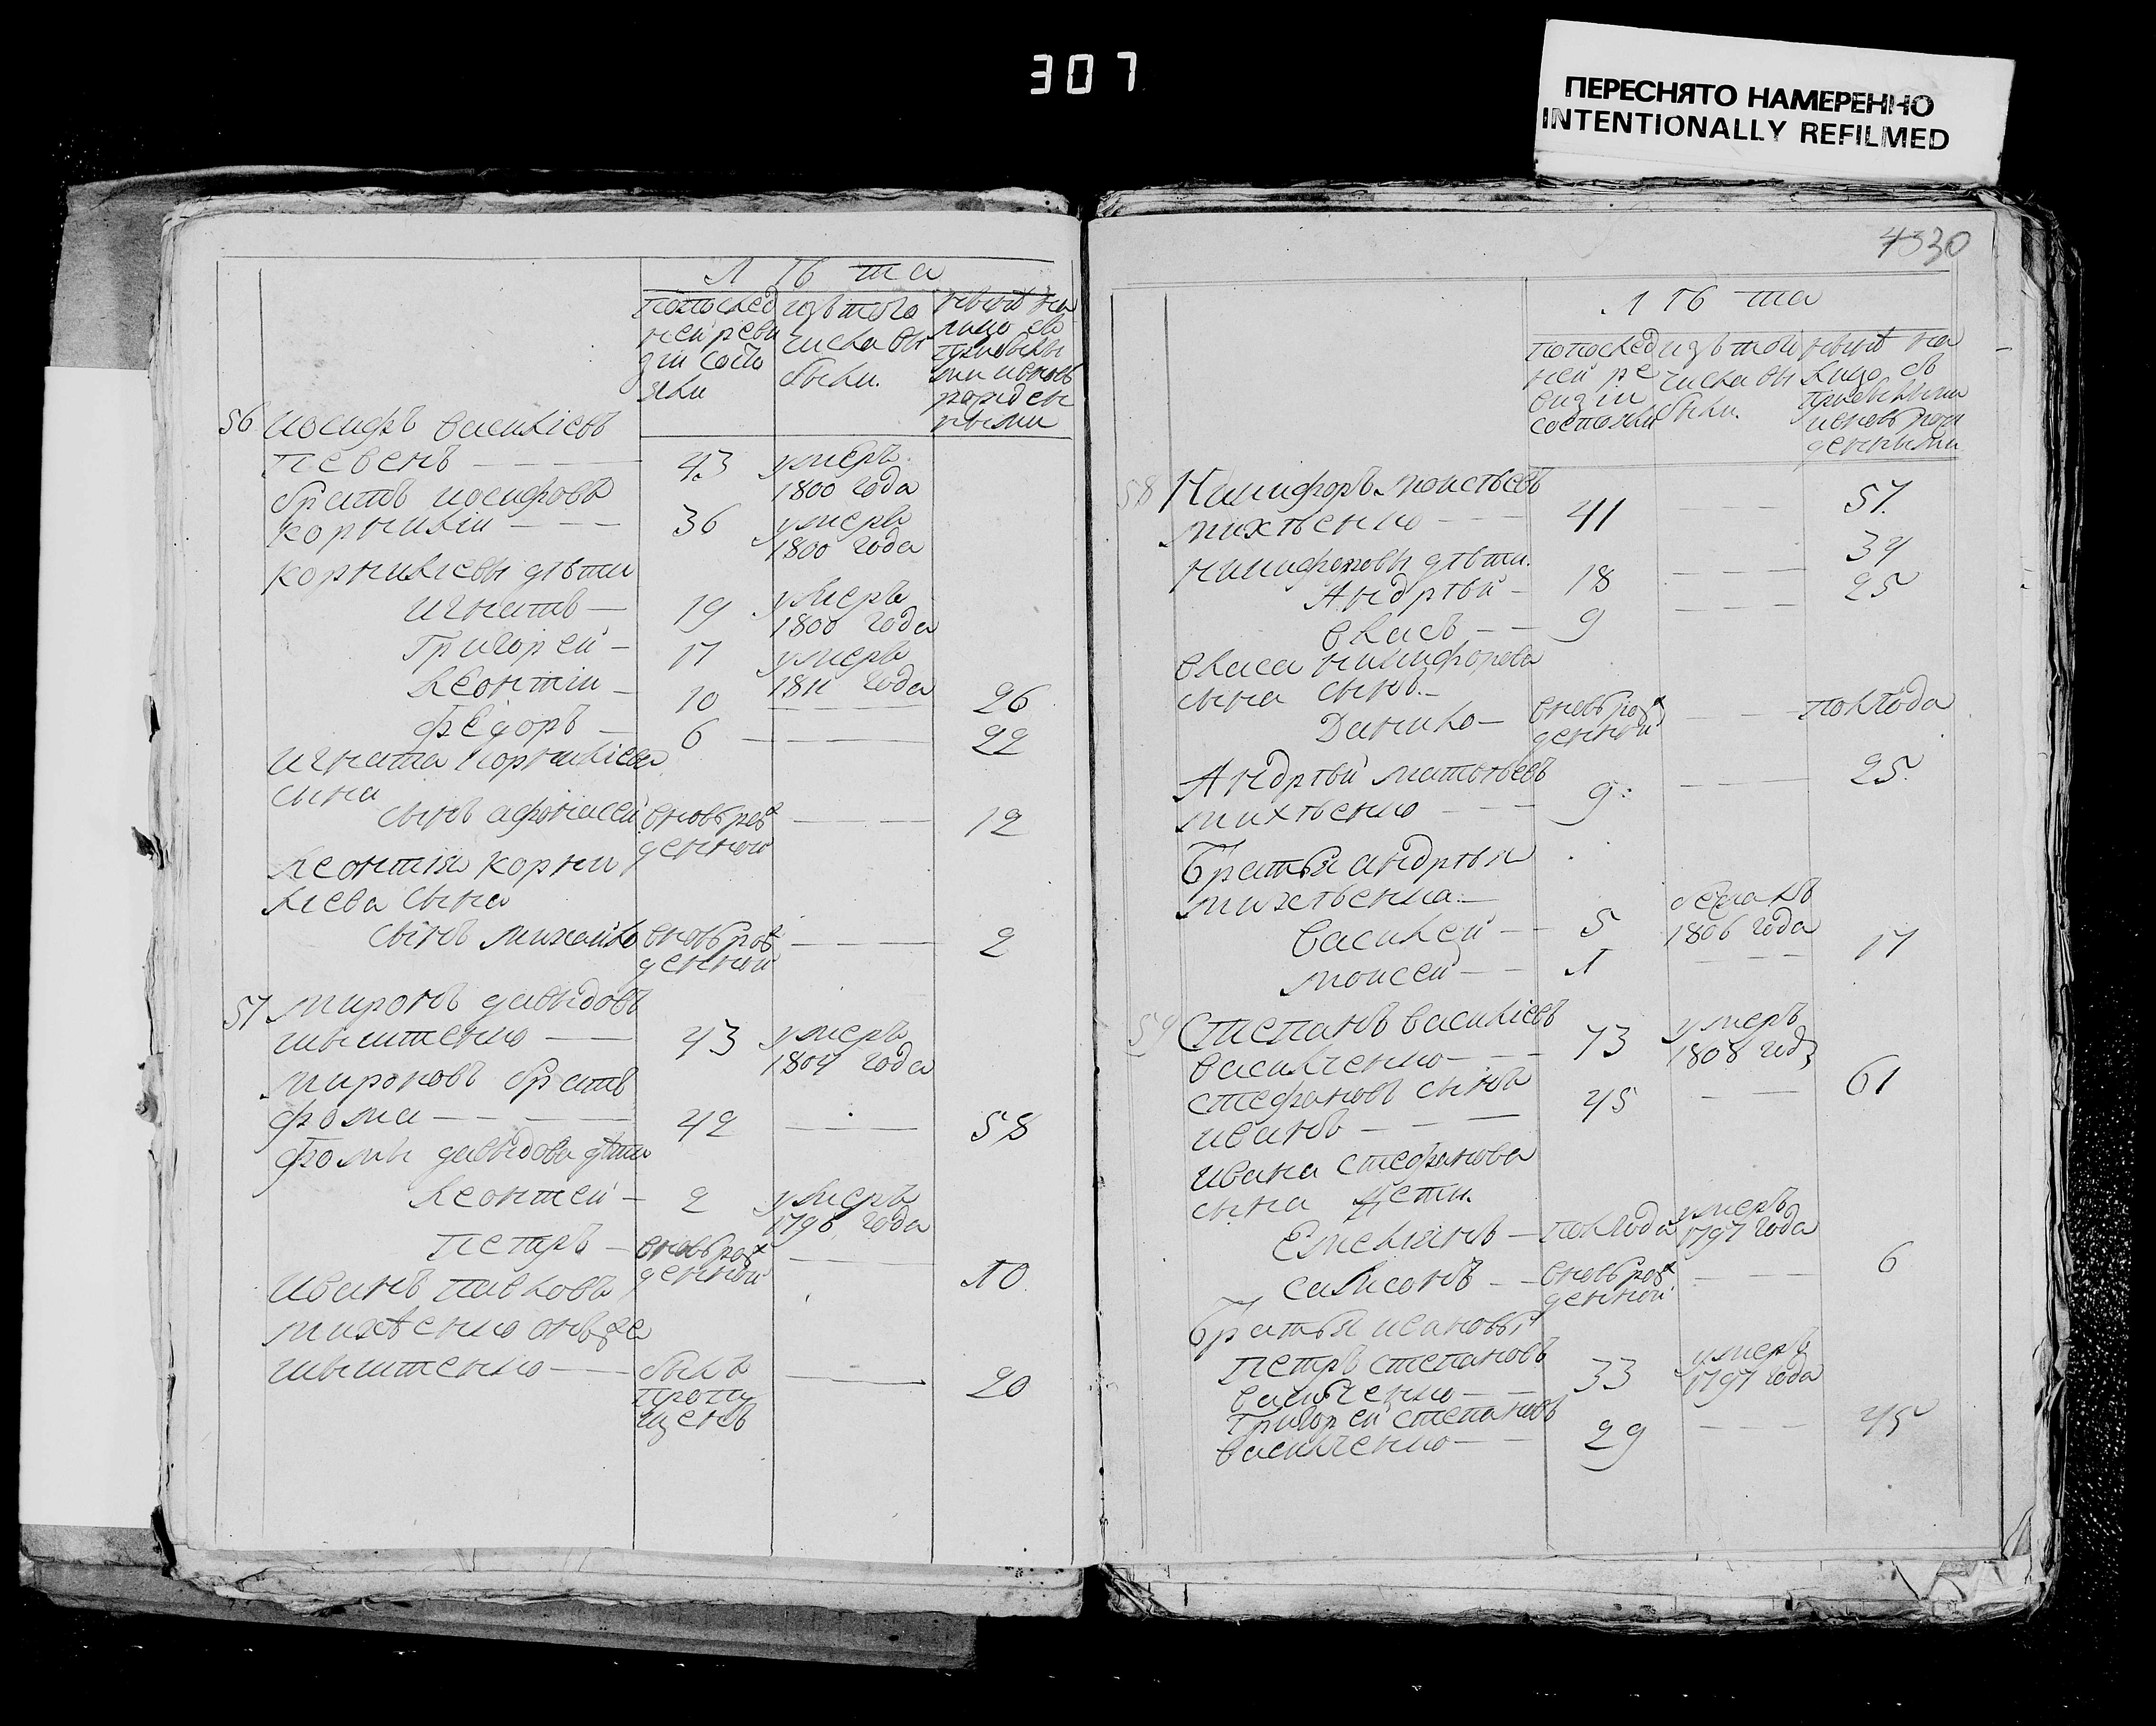 307
ПЕРЕСНЯТО НАМЕРЕННО
INTENTIONALLY REFILMED
лѣта
попослед изътого нынѣ на
ней реви числа вы лицо съ
зіи состо были. прибылы
яли ми ивновь
рожден
ными
56 иосифъ василіевъ
певенъ 43 умеръ
братъ иосифовъ 1800 года
корнилій 36 умеръ
1800 года
корнилиевы дѣти
игнатъ 19 умеръ
1800 года
григорей 17 умеръ
1811 года
леонтіи 10 26
федоръ 6 22
игната корнилиева
сына
сынъ афонасей вновьрож 12
денной
леонтія корни
лиева сына
сынъ михайло вновьрож 2
денной
57 миронъ давыдовъ
43 умеръ
1804 года
мироновъ братъ
фома 42 58
фомы давыдова дѣти
леонтей 2 умеръ
1796 года
петръ вновьрож 10
денной
иванъ павловъ
михѣенко онъже
былъ 20
пропу
щенъ
4330
лѣта
попослед изътой нынѣ на
ней ре числа вы лицо съ
визіи были. прибылыми
состояли ивновь рож
денными
58 Никифоръ моисѣевъ
михѣенко 41 57
никифоровы дѣти.
Андрѣй 18 34
власъ 9 25
власа никифорова
сына сынъ
Данило вновьрож полгода
денной
Андрѣй матвѣевъ
михѣенко 9 25
Братья андрѣя
михѣенка
василей 5 бежалъ
1806 года
моисей 1 17
59 Степанъ василіевъ
василченко 73 умеръ
1808 год
стефановъ сынъ
иванъ 45 61
ивана стефанова
сына дети.
Емелиянъ полгода умеръ
1797 года
самсонъ вновьрож 6
денной
Братья ивановы
петръ степановъ
василченко 33 умеръ
1797 года
григорей степановъ
василченко 29 45